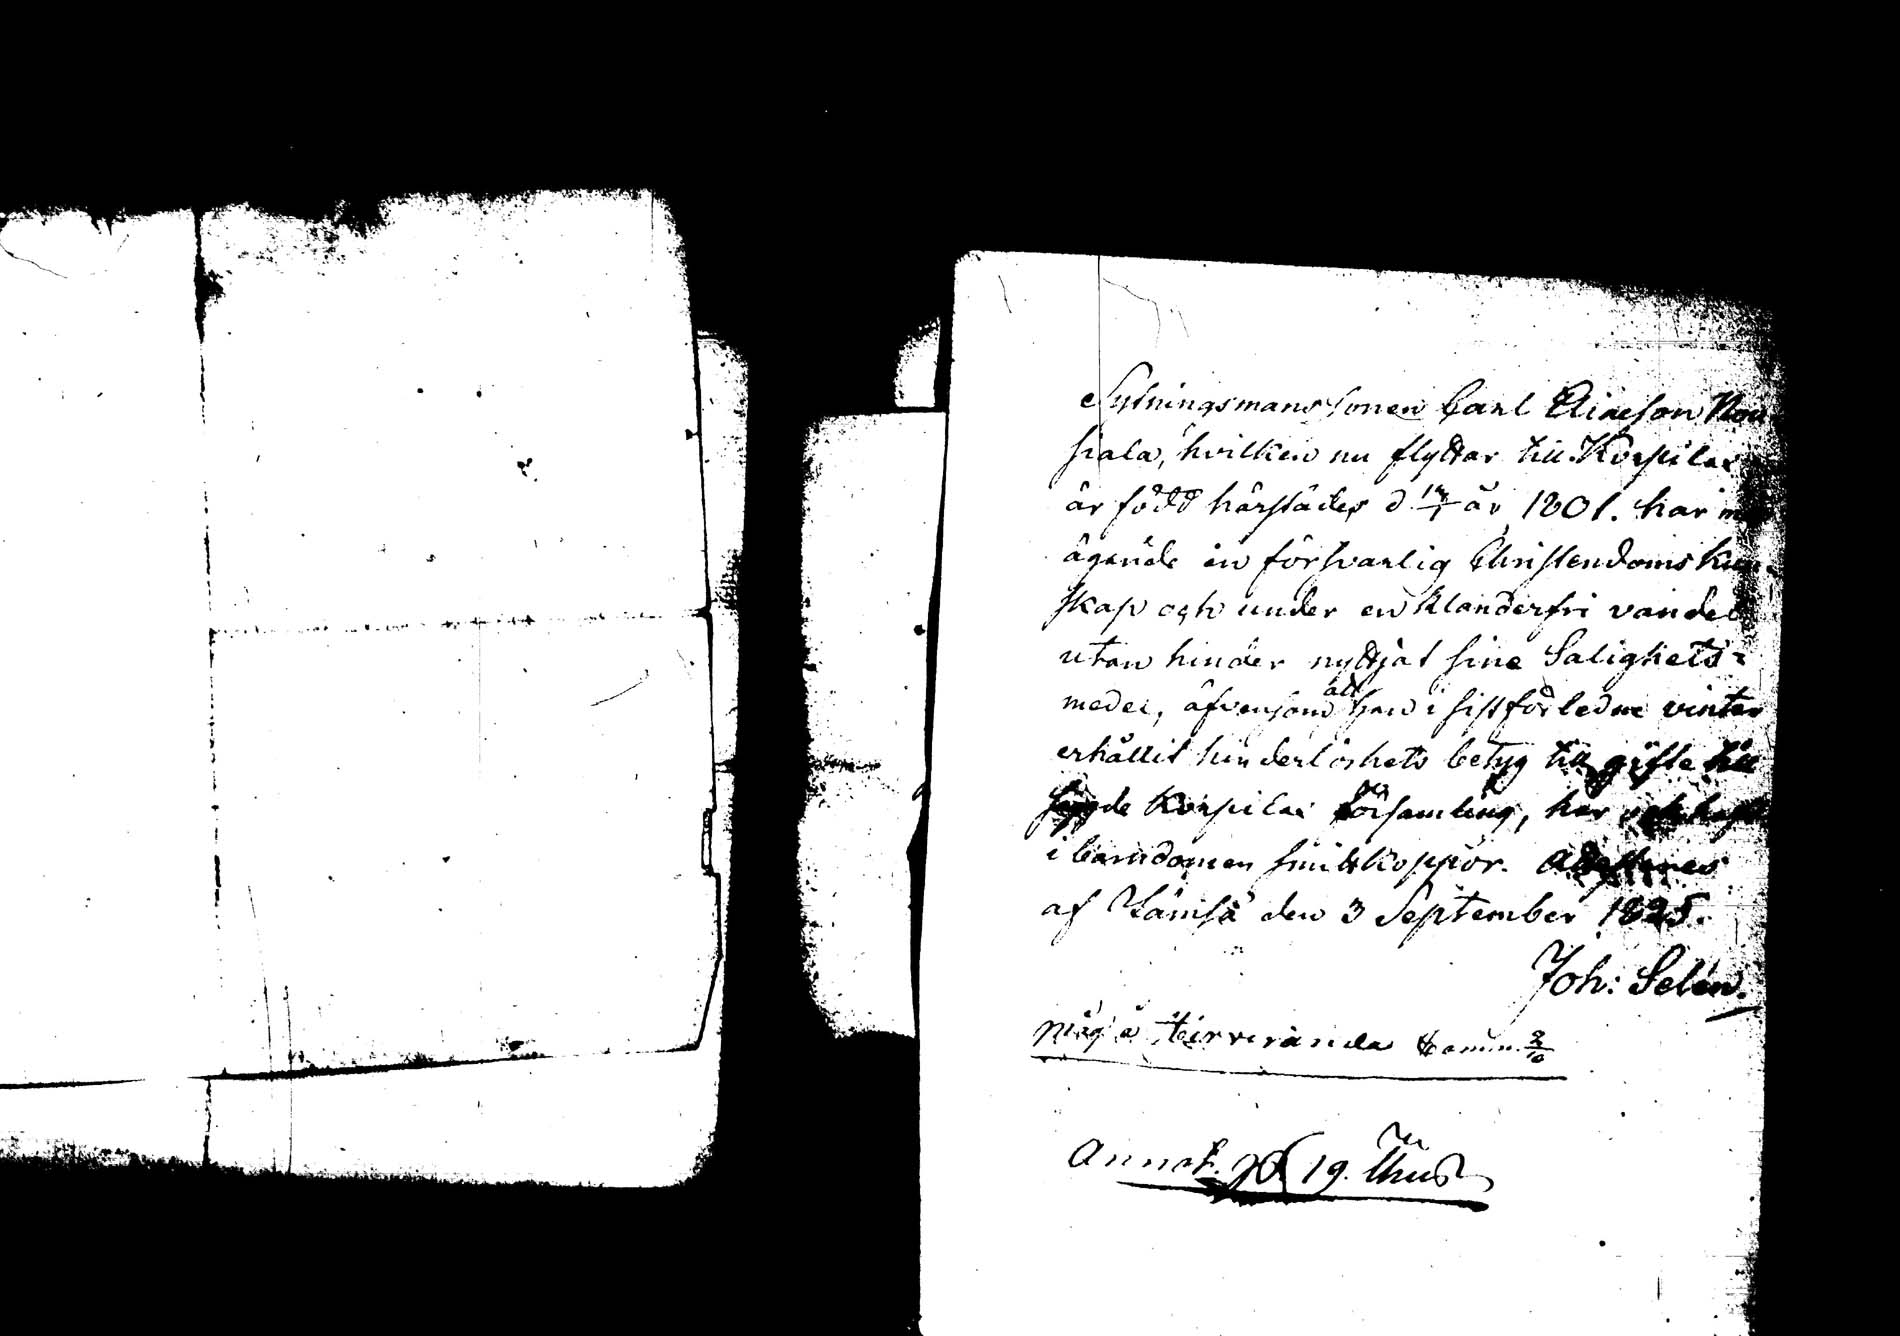 Sytningsmans sonen Carl Eliaeson Nou
siala, hvilken nu flyttar till Korpilax
är född härstädes d. år 1801. har
ägande en försvarlig Christendoms Kun-
skap och under en klanderfri vandel
utan hinder nyttjat sine Salighets-
medel, äfvensom att han i sistförledne vinter
erhållit hinderlöshets betyg till gifte till
Korpilax församling, har
i barndomen haft Koppor. Attesteras
af Jämsä den 3 September 1825.
Joh: Selén.
måg å
Annot. 19.